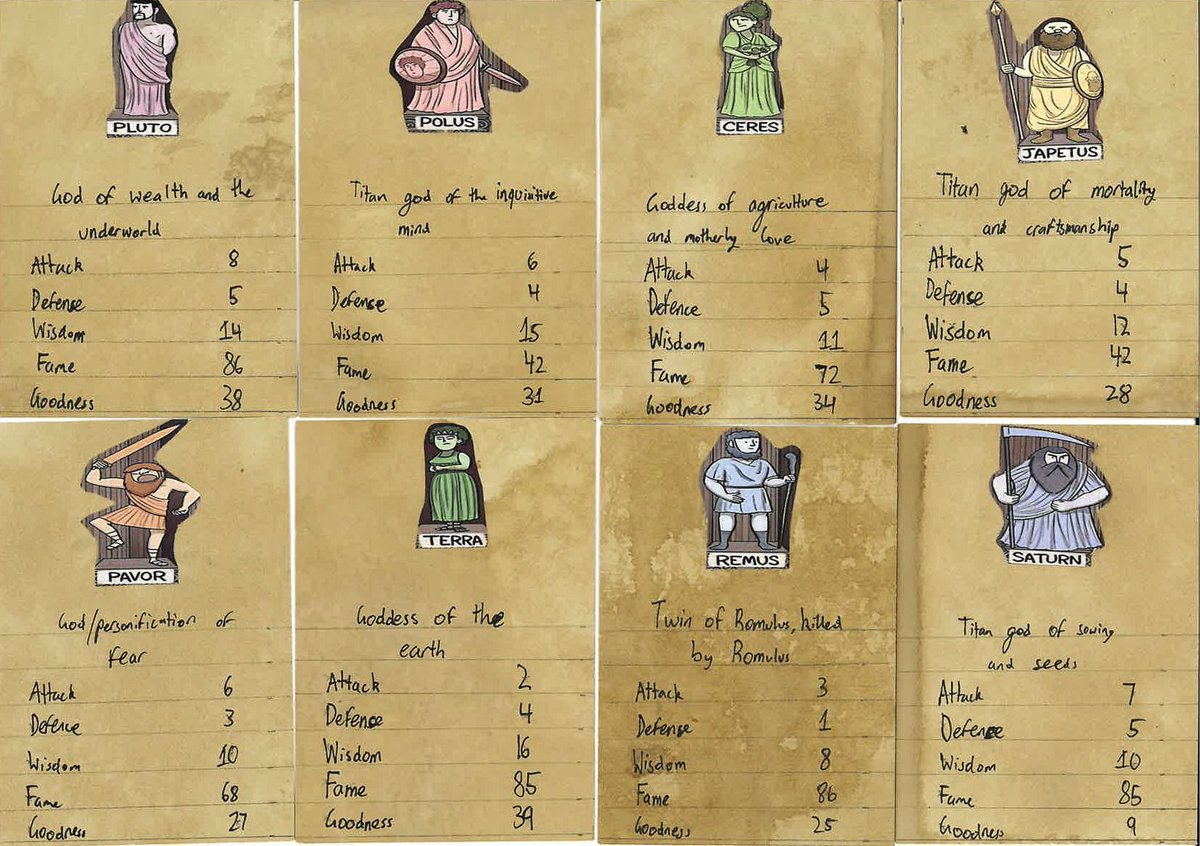 PLUTO
God of wealth and the
underworld
Attack 8
Defense 5
Wisdom 14
Fame 86
Goodness 38
POLUS
Titan god of the inquinitive
mind
Attack 6
Defense 4
Wisdom 15
Fame 42
Goodness 31
CERES
Goddess of agriculture
and motherly love
Attack 4
Defence 5
Wisdom 11
Fame 72
Goodness 34
JAPETUS
Titan god of mortality
and craftsmanship
Attack 5
Defense 4
Wisdom 12
Fame 42
Goodness 28
PAVOR
God/personification of
fear
Attack 6
Defence 3
Wisdom 10
Fame 68
Goodness 27
TERRA
Goddess of the
earth
Attack 2
Defense 4
Wisdom 16
Fame 85
Goodness 39
REMUS
Twin of Romulus, killed
by Romulus
Attack 3
Defense 1
Wisdom 8
Fame 86
Goodness 25
SATURN
Titan god of sowing
and seeds
Attack 7
Defense 5
Wisdom 10
Fame 85
Goodness 9